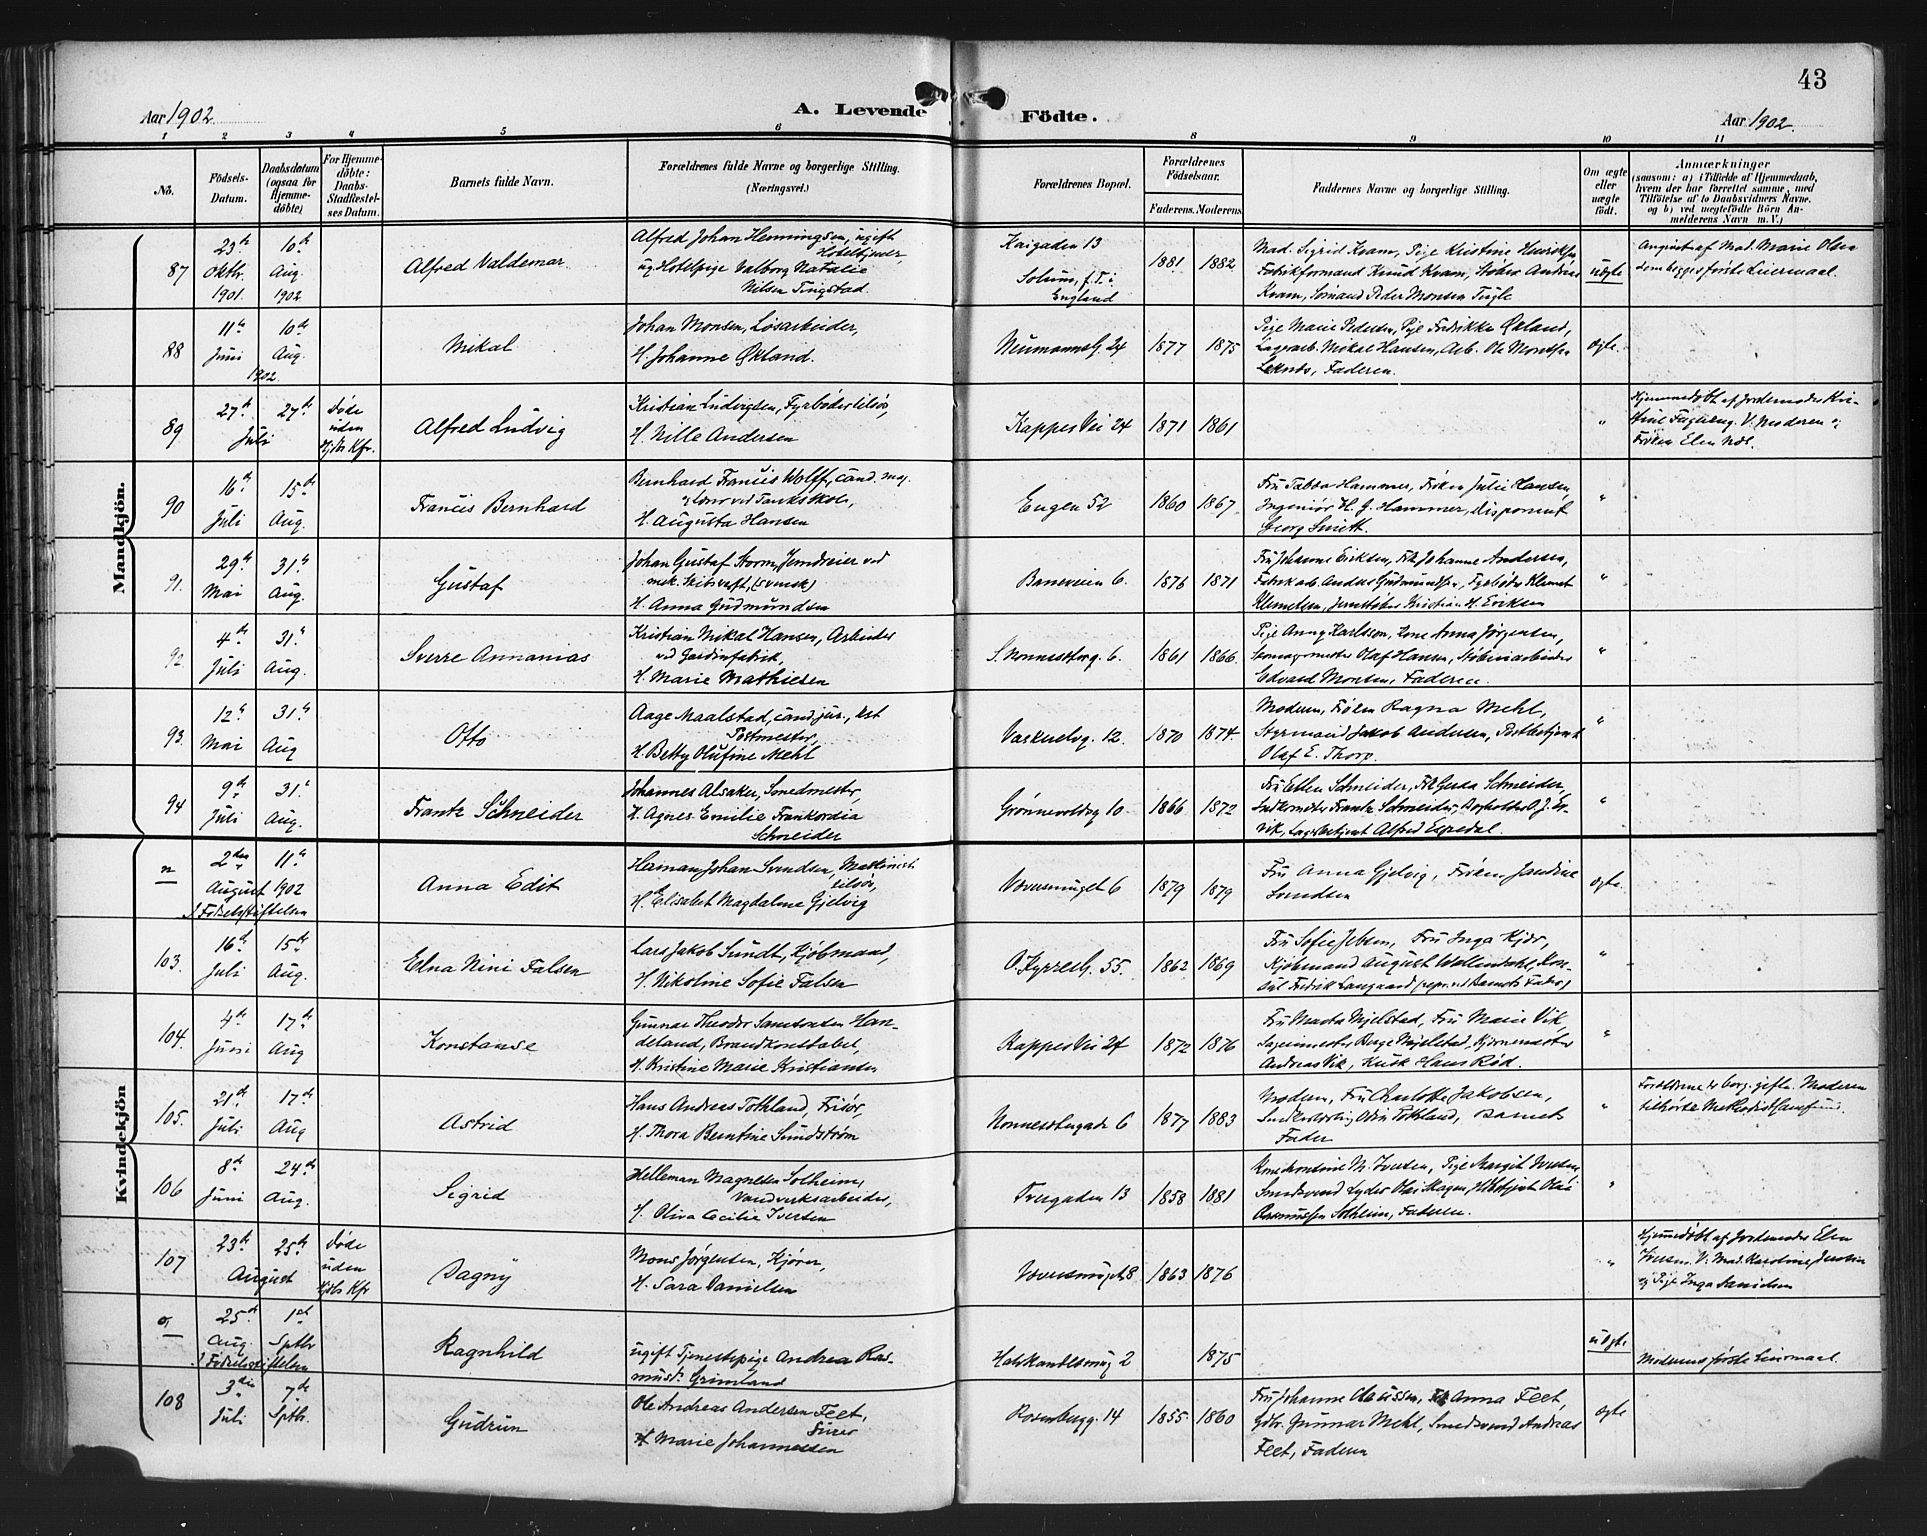 43
Aar 1902. A. Levende Födte. Aar 1902.
1 2 3 4 5 6 8 9 10 11
No. Födsels-Datum. Daabsdatum (ogsaa for Hjemme-döbte) For Hjemme-döbte: Daabs-Stadfæstel-ses Datum. Barnets fulde Navn. Forældrenes fulde Navne og borgerlige Stilling. (Næringsvei.) Forældrenes Bopæl. Forældrenes Födselsaar. Faderens. Moderens. Faddernes Navne og borgerlige Stilling. Om ægte eller uægte födt. Anmærkninger (saasom: a) i Tilfælde af Hjemmedaab, hvem der har forrettet samme, med Tilföielse af to Daabsvidners Navne, og b) ved uægtefödte Börn An-melderens Navn m. V.)
Mandkjön.
87 23de Oktbr. 1901. 10de Aug. 1902 Alfred Valdemar
Alfred Johan Henningsen, ugift Hotelstjener,
ug. Hotelpige Valborg Natalie
Nilsen Tingstad.
Kaigaden 13
Solum, f. T. i
England
1881 1882
Mad. Sigrid Kvam, Pige Kristine Henriksen,
Fabrikformand Knud Kvam, Støber Andreas
Kvam, Sømand Peder Monsen Tugle
uægte
Angivet af Mad. Marie Olsen
som begges første Leiermaal.
88 11te Juni 10de Aug. 1902. Mikal
Johan Monsen, Løsarbeider,
H. Johanne Økland.
Neumannsg. 24 1877 1875
Pige Marie Pedersen, Pige Fredrikke Økland,
Lagerarb. Mikal Hansen, Arb. Ole Montsen
Leknes, Faderen.
ægte.
89 27de 27de Juli Døde uden Kjrks Kfr. Alfred Ludvig
Kristian Ludvigsen, Fyrbøder tilsøs,
H. Nille Andersen
Kappes Vei 24 1871 1861 "
Hjemmedøbt af Jordemoder Kri-
stine Fuglleng. V. Moderen og
Frøken Elen Næs.
90 16de Juli 15de Aug. Francis Bernhard
Bernhard Francis Wolff, cand. mag.
og Lærer ved Tanks skole,
H. Augusta Hansen
Engen 52 1860 1867
Fru Tabba Hammer, Frøken Julie Hansen,
Ingeniør H. G. Hammer, disponent
Georg Smitt.
"
91. 29de Mai 31te Aug. Gustaf
Johan Gustaf Storm, Jerndreier ved
mek. Skibsværft, (svensk)
H. Anna Gudmundsen
Baneveien 6. 1876 1871
Fru Johanne Eriksen, Frk Johanne Andersen,
Fabrikarb. Anders Gudmundsen, Fyrbøder Klemet
Klemetsen, Jernstøber Kristian H. Eriksen
"
92. 4de Juli 31te Aug. Sverre Annanias
Kristian Mikal Hansen, Arbeider
ved Gardinfabrik,
H. Marie Mathiesen
S. Nonnesterg. 6. 1861 1866.
Pige Anny Karlsson, Kone Anna Jørgensen,
Skomagermester Olaf Hansen, Støberiarbeider
Edvard Monsen, Faderen.
"
93. 12te Mai 31te Aug Otto
Aage Maalstad, cand. jur., kst
Postmester,
H. Betty Olufine Mehl
Vaskerelvg. 12. 1870 1874.
Moderen, Frøken Ragna Mehl,
Styrmand Jakob Andersen, Postbetjent
Olaf E. Thorp.
"
94 9de Juli 31te Aug. Frantz Schneider
Johannes Alsaker, Smedmester,
H. Agnes Emilie Frankordia
Schneider
Grønnevoldsg 10 1866 1872
Fru Ellen Schneider, Frk Gerda Schneider,
Lagerbetjent Alfred Espedal.
"
Kvindekjön
n 2den August 1902 11te I Fødselsstiftelsen Anna Edit
Herman Johan Svendsen, Maskinist
tilsøs,
H. Elisabet Magdalene Gjelvig
Væversmuget 6 1879 1879
Fru Anna Gjelvig, Frøken Jandine
Svendsen
ægte.
103. 16de Juli 15de Aug. Elna Nini Falsen
Lars Jakob Sundt, Kjøbmand,
H. Nikoline Sofie Falsen
O. Kyrresg. 55. 1862 1869
Fru Sofie Jebsen, Fru Inga Kjær,
Kjøbmand August Wallendahl, Kon-
sul Fredrik Langaard repr. ved Barnets Fader
"
104. 4de Juni 17de Aug Konstanse
Gunnar Theodor Samsonsen Han-
deland, Brandkonstabel,
H. Kristine Marie Kristiansen
Kappes Vei 24 1872 1876
Fru Marta Mjelstad, Fru Marie Vik,
Sagmester Berge Mjelstad, Gjørtlermester
Andreas Vik, Kusk Hans Rød.
"
105. 21de Juli 17de Aug Astrid
Hans Andreas Tothland, Frisør,
H. Thora Berntine Sundstrøm
Nonnestergade 6 1877 1883
Moderen, Fru Charlotte Jakobsen,
Odin Tothland, Barnets
Fader
"
Forældrene er borg. gifte. Moderen
tilhører Methodistsamfund.
106 8de Juni 24de Aug. Sigrid
Helleman Magnesen Solheim,
Vandverksarbeider,
H. Oliva Cecilie Iversen
Tvergaden 13 1858 1881
M. Iversen, Pige Margit Iversen
Smedsvend Lyder Olai Skagen, Olai
Rasmussen Solheim, Faderen.
"
107 23de 25de August Døde uden Kjrks Kfr Dagny
Mons Jørgensen, Kjører,
H. Sara Danielsen
Væversmuget 8 1863 1876 "
Hjemmedøbt af Jordemoder Elen
Iversen. V. Mad. Karoline
og Pige Inga Danielsen
o, 25de Aug. 1ste Sptbr I Fødselsstiftelsen Ragnhild
ugift Tjenestepige Andrea Ras-
musd. Grimland
Halvkandesmug 2 1875 uægte
Moderens første Leiermaal.
108 3die Juli 7de Sptbr. Gudrun
Ole Andreas Andersen Feet,
Fører
H. Marie Johannessen
Rosenbergg. 14 1855 1860
Fru Johanne Olaussen, Frk Anna Feet,
Gdbr. Gunnar Mehl, Smedsvend Andreas
Feet, Faderen
ægte